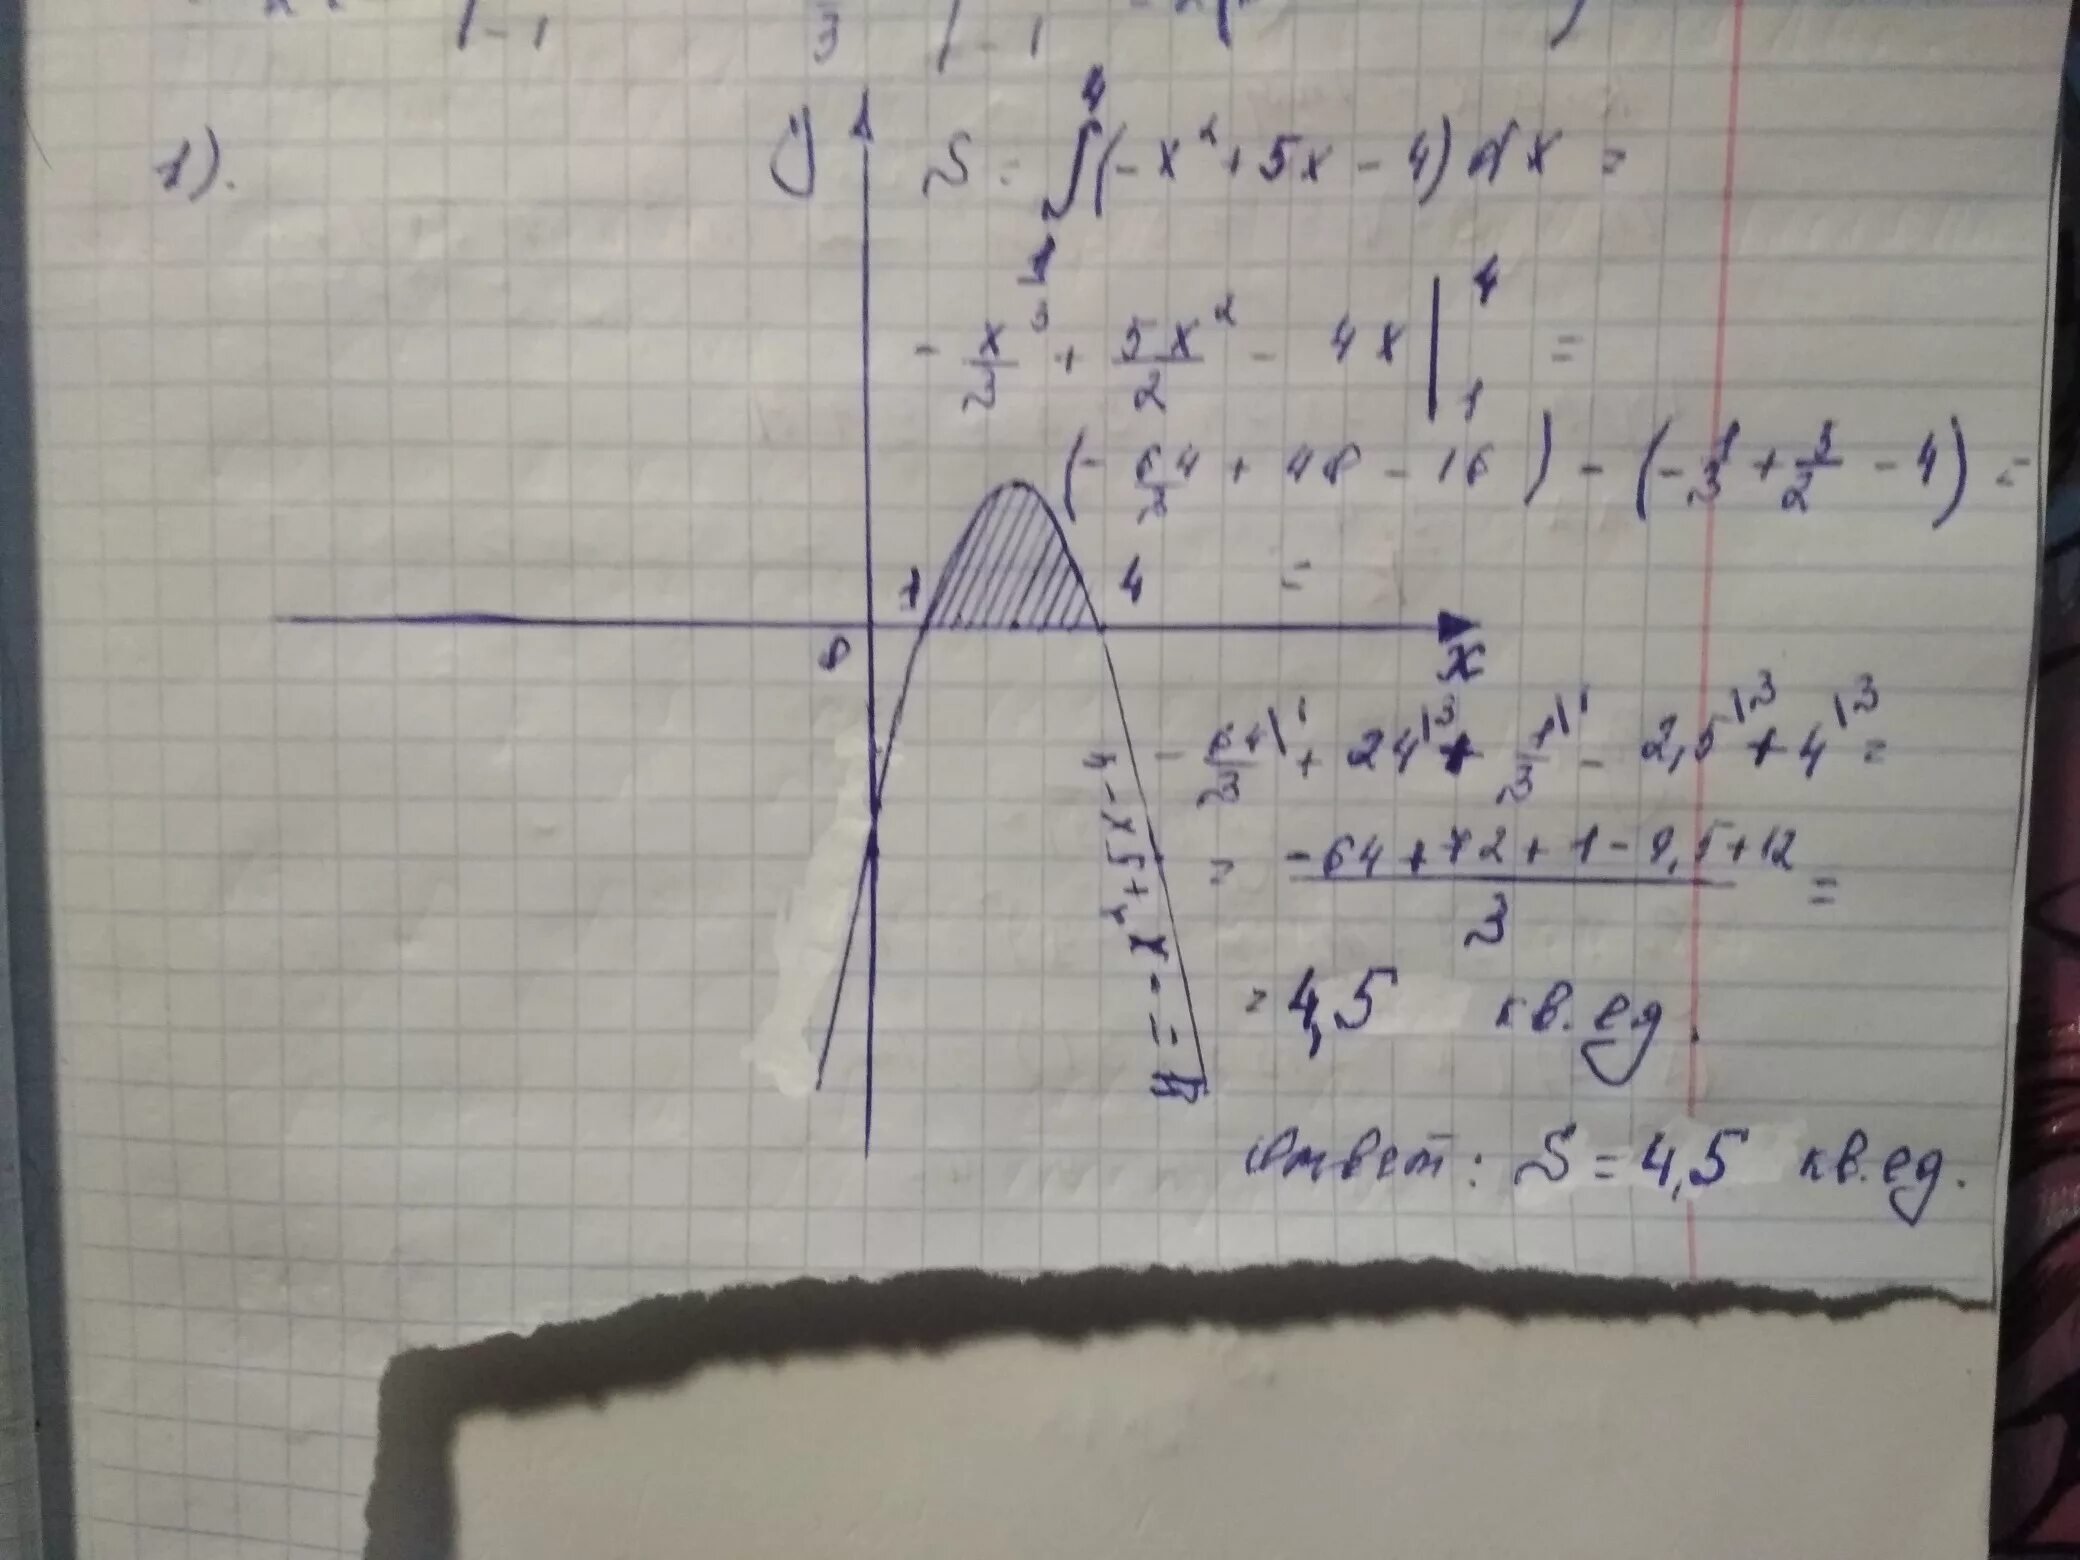 1).
y
S = ∫₁⁴ (-x² + 5x - 4) dx =
-x³/3 + 5x²/2 - 4x |₁⁴ =
(-64/3 + 48 - 16) - (-1/3 + /2 - 4) =
1 4 =
0 x
-64/3|¹ + 24|³ + 1/3|¹ - 2,5|³ + 4|³ =
y = -x² + 5x - 4
= (-64 + 72 + 1 - 7,5 + 12)/3 =
= 4,5 кв. ед.
Ответ: S = 4,5 кв. ед.